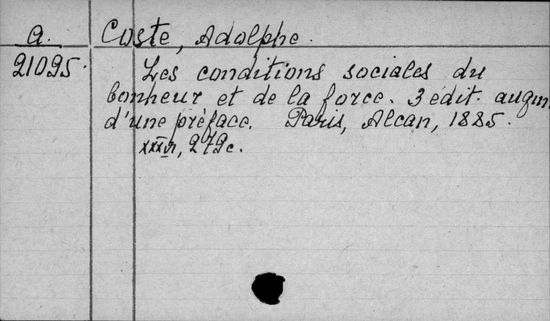 a. Coste, Adolphe.
21095. Les conditions sociales du
bonheur et de la force. 3 édit. augm.
d'une préface. Paris, Alcan, 1885.
272c.